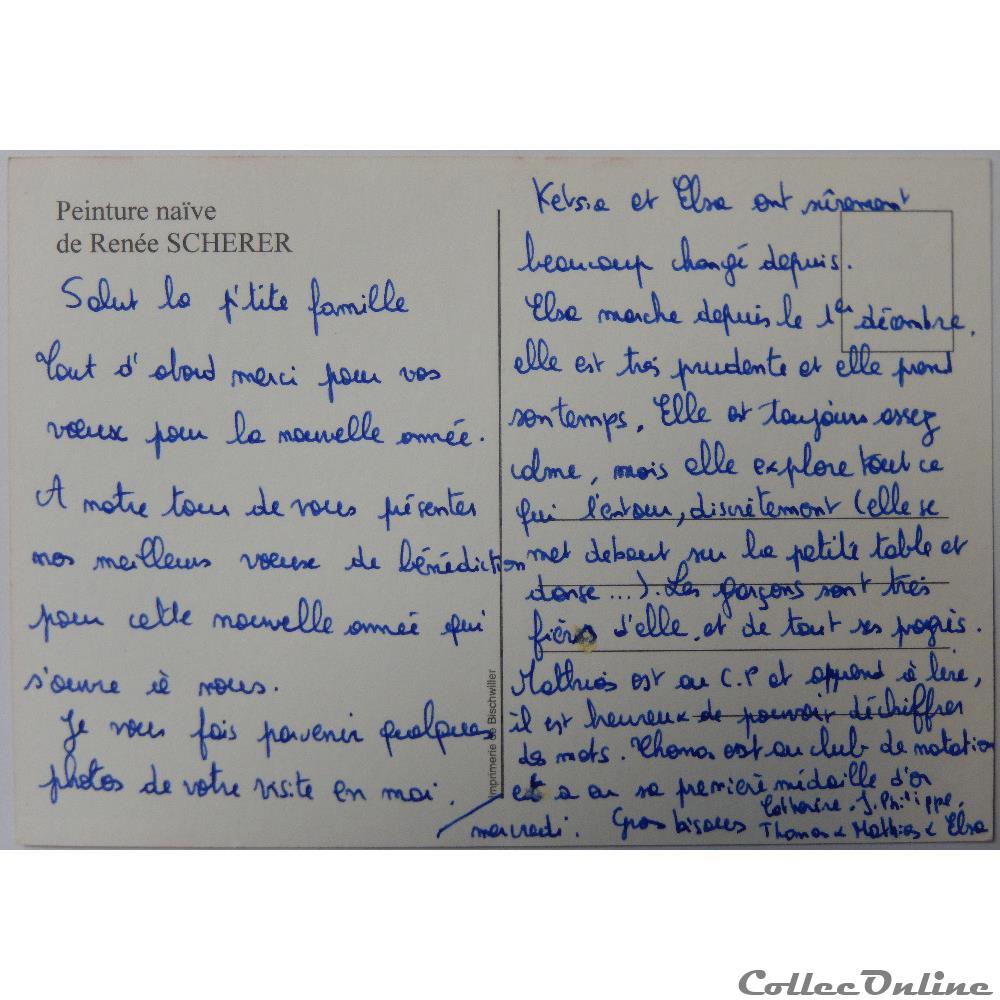 Peinture naïve
de Renée SCHERER
Salut la p'tite famille
Tout d'abord merci pour vos
vœux pour la nouvelle année.
A notre tour de vous présenter
nos meilleurs voeux de bénédiction
pour cette nouvelle année qui
s'ouvre à nous.
Je vous fais parvenir quelques
photos de votre visite en mai.
Imprimerie de Bischwiller
Ketsia et Elsa ont sûrement
beaucoup changé depuis.
Elsa marche depuis le 1er décembre,
elle est très prudente et elle prend
son temps. Elle est toujours assez
calme, mais elle explore tout ce
qui l'entour, discrètement (elle se
met debout sur la petite table et
danse ...). Les garçons sont très
fiers d'elle, et de tout ses progrès.
Mathias est au C.P et apprend à lire,
il est heureux de pouvoir déchiffrer
des mots. Thomas est au club de natation
et a eu sa première médaille d'or
mercredi. Gros bisous Catherine. J. Philippe.
Thomas & Mathias & Elsa
CollecOnline